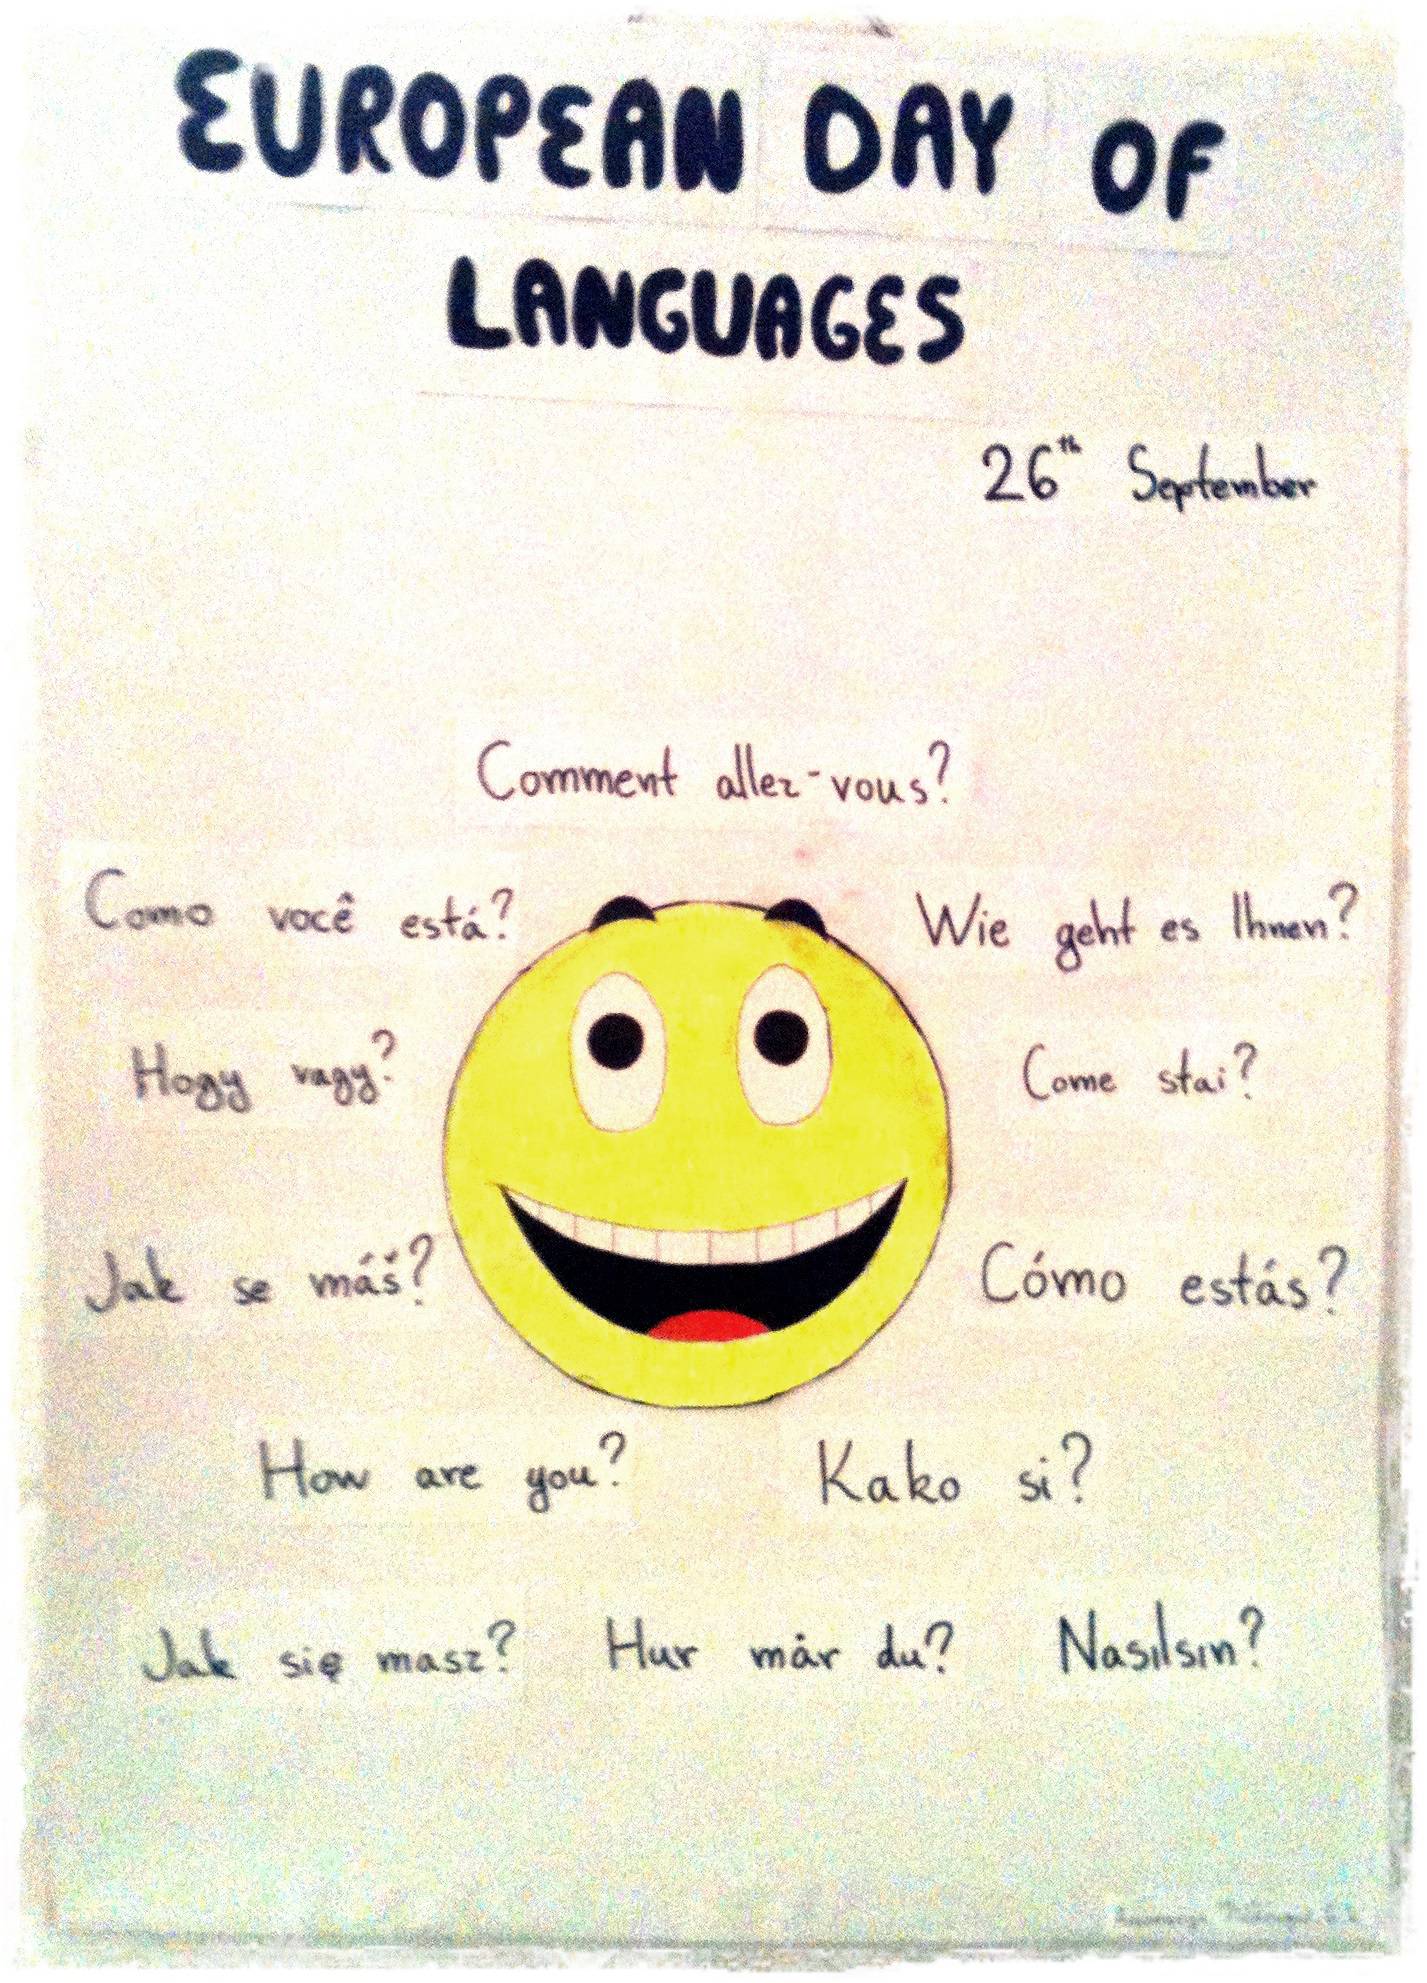 EUROPEAN DAY OF
LANGUAGES
26th September
Comment allez-vous?
Como você está?
Wie geht es Ihnen?
Hogy vagy?
Come stai?
Jak se máš?
Cómo estás?
How are you?
Kako si?
Jak się masz?
Hur mår du?
Nasılsın?